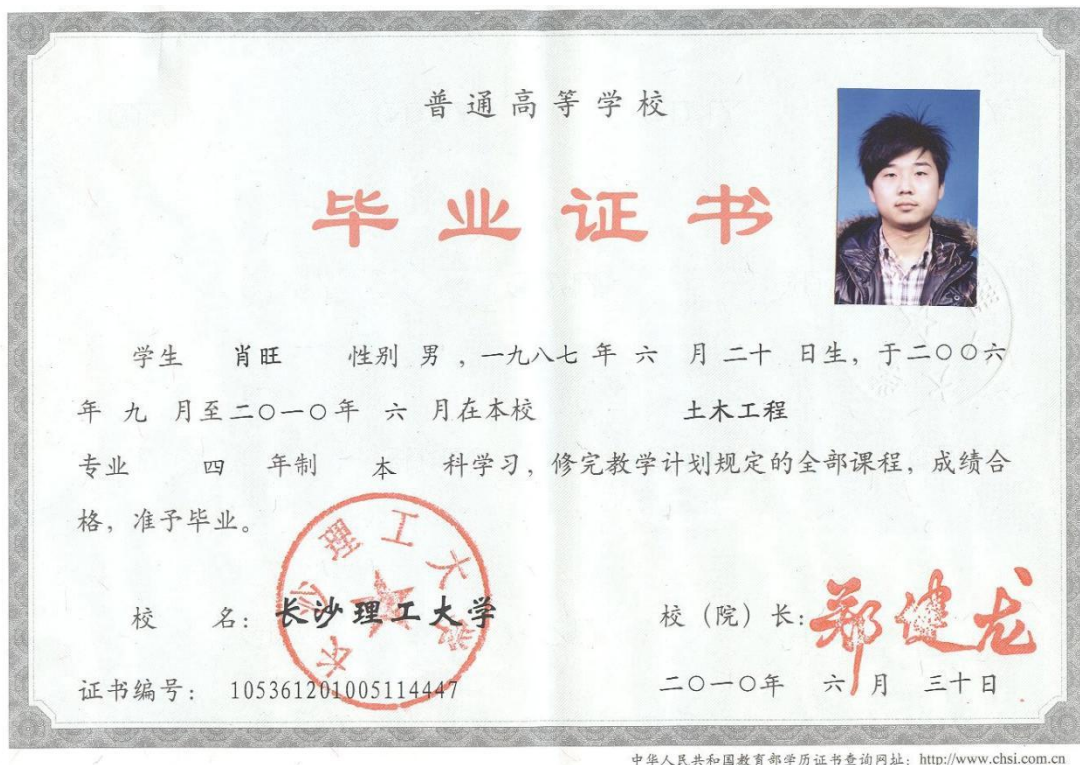 普通高等学校
毕业证书
学生 肖旺 性别 男 ,一九八七 年 六 月 二十 日生，于二〇〇六
年 九 月至二〇一〇年 六 月在本校 土木工程
专业 四 年制 本 科学习，修完教学计划规定的全部课程，成绩合
格，准予毕业。
长沙理工大学
校 名：长沙理工大学 校（院）长：郑健龙
证书编号： 105361201005114447 二〇一〇年 六 月 三十日
中华人民共和国教育部学历证书查询网址：http://www.chsi.com.cn